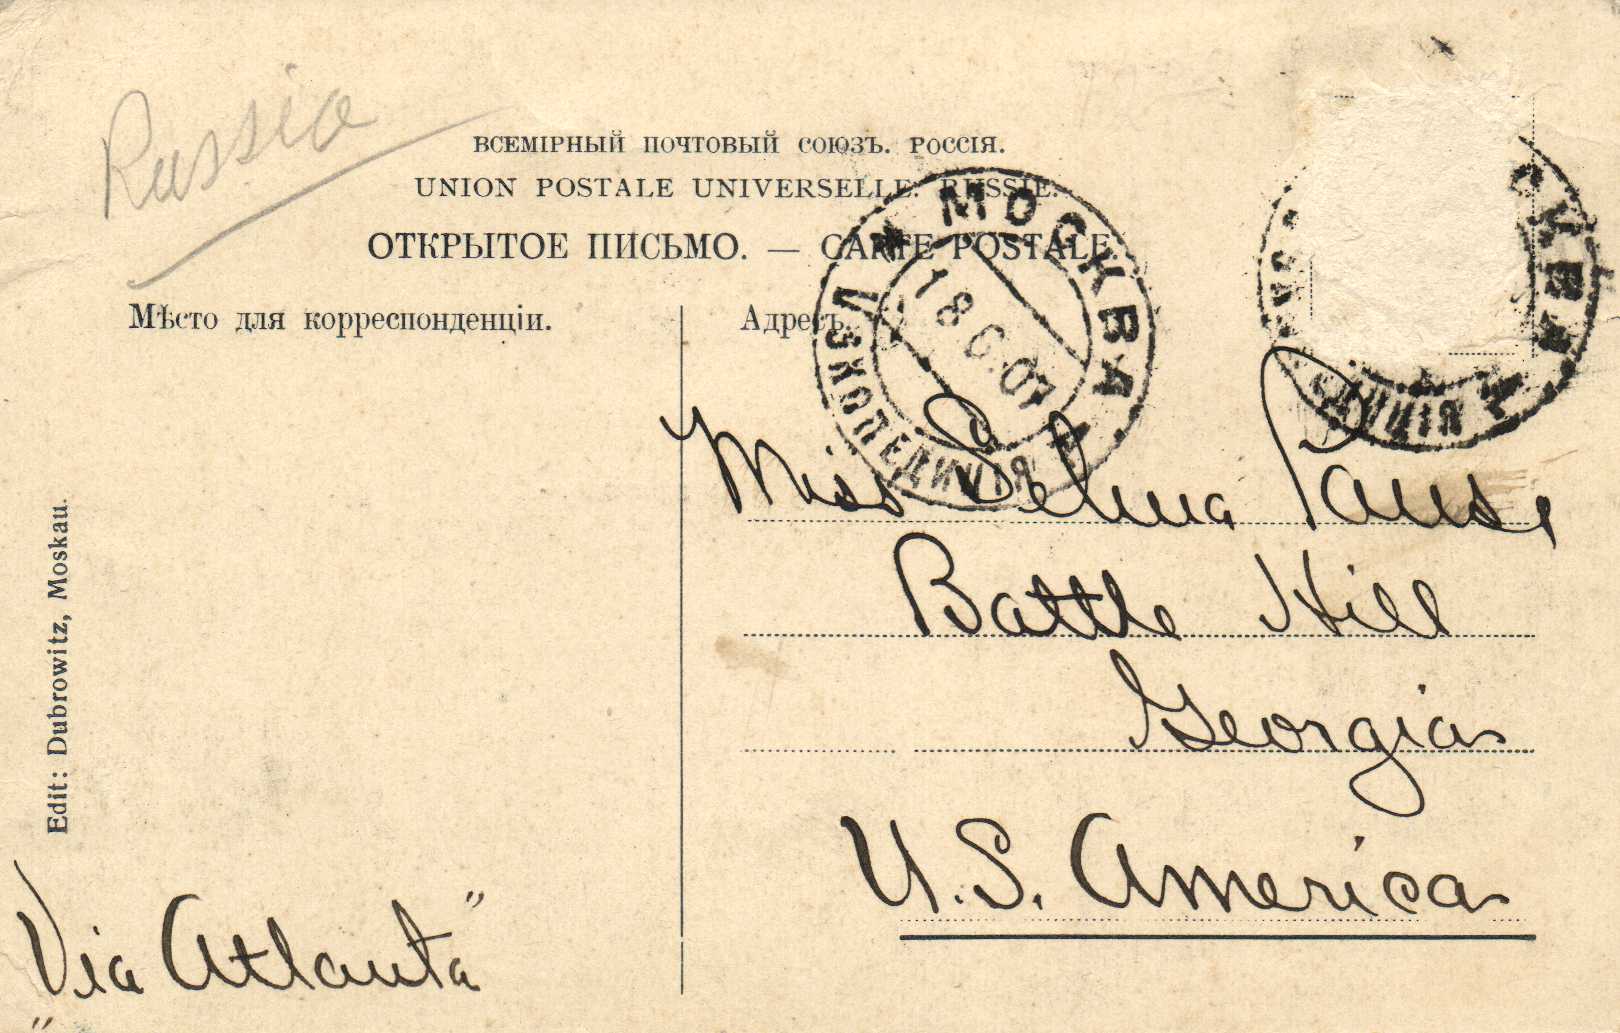 Russia
ВСЕМІРНЫЙ ПОЧТОВЫЙ СОЮЗЪ. РОССІЯ.
UNION POSTALE UNIVERSELLE. RUSSIE.
ОТКРЫТОЕ ПИСЬМО. — CARTE POSTALE.
Мѣсто для корреспонденціи.
Адресъ.
МОСКВА
18 6.07
ЭКСПЕДИЦІЯ
Miss Selma
Battle Hill
Georgia
U.S. America
Edit: Dubrowitz, Moskau.
"Via Atlanta"